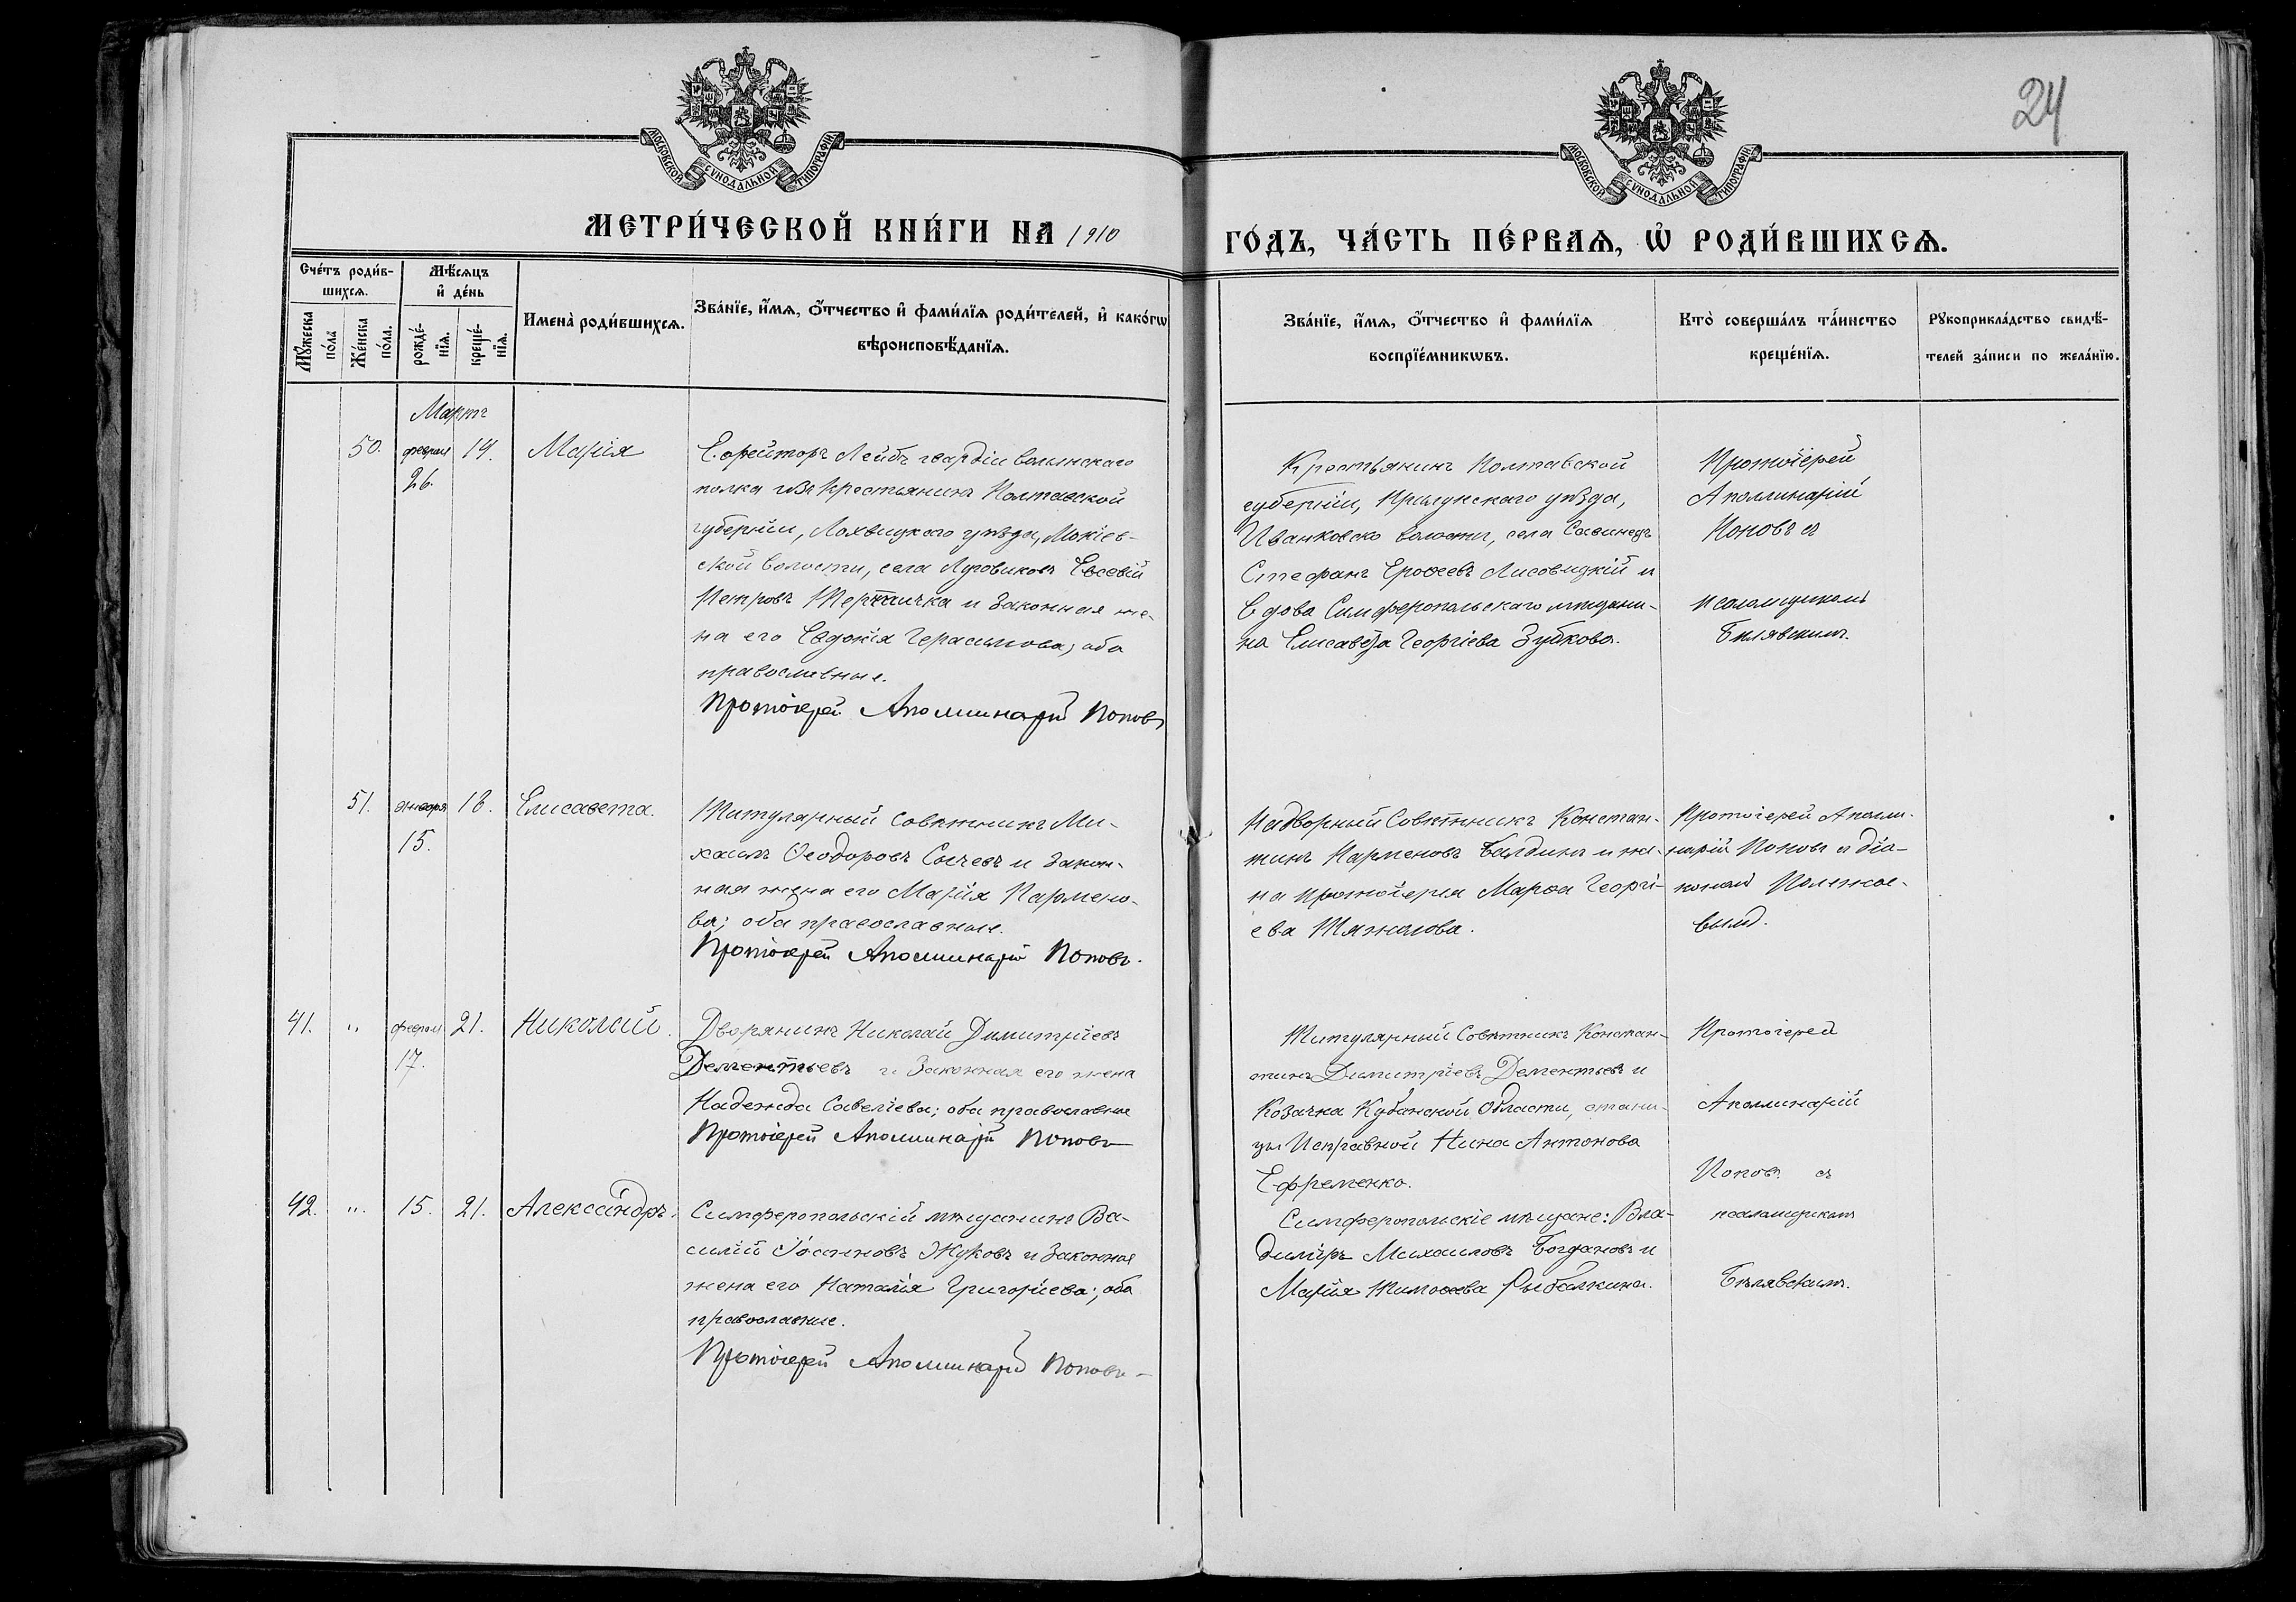 24
МОСКОВСКОЙ СУНОДАЛЬНОЙ ТИПОГРАФІИ
МОСКОВСКОЙ СУНОДАЛЬНОЙ ТИПОГРАФІИ
МЕТРИ́ЧЕСКОЙ КНИ́ГИ НА 1910
ГО́ДЪ, ЧА́СТЬ ПЕ́РВАѦ, Ѡ҆ РОДИ́ВШИХСѦ.
Сче́тъ роди́в-
шихсѧ.
Мꙋ́жеска по́ла
Же́нска по́ла.
Мѣ́сѧцъ
и҆ де́нь
рожде́-
нїѧ.
креще́-
нїѧ.
Имена̀ роди́вшихсѧ.
Зва́нїе, и҆́мѧ, ѻ҆́тчество и҆ фами́лїѧ роди́телей, и҆ како́гѡ
вѣроисповѣ́данїѧ.
Зва́нїе, и҆́мѧ, ѻ҆́тчество и҆ фами́лїѧ
воспрїе́мникѡвъ.
Кто̀ соверша́лъ та́инство
креще́нїѧ.
Рꙋкоприкла́дство свидѣ́-
телей за́писи по жела́нїю.
Мартъ
50.
феврал
26.
19.
Марія
Ефрейторъ Лейбъ гвардіи Волынскаго
полка изъ крестьянинъ Полтавской
губерніи, Лохвицкаго уѣзда, Мокіев-
ской волости, села Луговиковъ Евсевій
Петровъ и законная же-
на его Евдокія Герасимова; оба
православные.
Протоіерей Аполлинарій Поповъ
Крестьянинъ Полтавской
губерніи, Прилукскаго уѣзда,
Иванковско волости, села Савинецъ
Стефанъ Ерофеевъ Лисовицкій и
вдова Симферопольскаго мѣщани-
на Елисавета Георгіева Зубкова.
Протоіерей
Аполлинарій
Поповъ съ
псаломщикомъ
Бѣлявскимъ.
51.
января
15.
18.
Елисавета.
Титулярный Совѣтникъ Ми-
хаилъ Ѳеодоровъ Сычевъ и закон-
ная жена его Марія Пармено-
ва; оба православные.
Протоіерей Аполлинарій Поповъ.
Надворный Совѣтникъ Констан-
тинъ Парменовъ Балдинъ и же-
на протоіерея Марѳа Георгі-
ева Тяжелова.
Протоіерей Аполли-
нарій Поповъ и діа-
кономъ
вымъ.
41.
"
феврал
17.
21.
Николай.
Дворянинъ Николай Димитріевъ
Дементьевъ и законная его жена
Надежда Савеліева; оба православные
Протоіерей Аполлинарій Поповъ
Титулярный Совѣтникъ Констан-
тинъ Димитріевъ Дементьевъ и
Козачка Кубанской Области, стани-
цы Исправной Нина Антонова
Ефременко.
Протоіерей
Аполлинарій
Поповъ съ
42.
"
15.
21.
Александръ.
Симферопольскій мѣщанинъ Ва-
силій Іоанновъ Жуковъ и законная
жена его Наталія Григоріева; оба
православные.
Протоіерей Аполлинарій Поповъ
Симферопольскіе мѣщане: Вла-
диміръ Михаиловъ Богдановъ и
Марія Тимоѳеева Рыбалкина.
псаломщикомъ
Бѣлявскимъ.